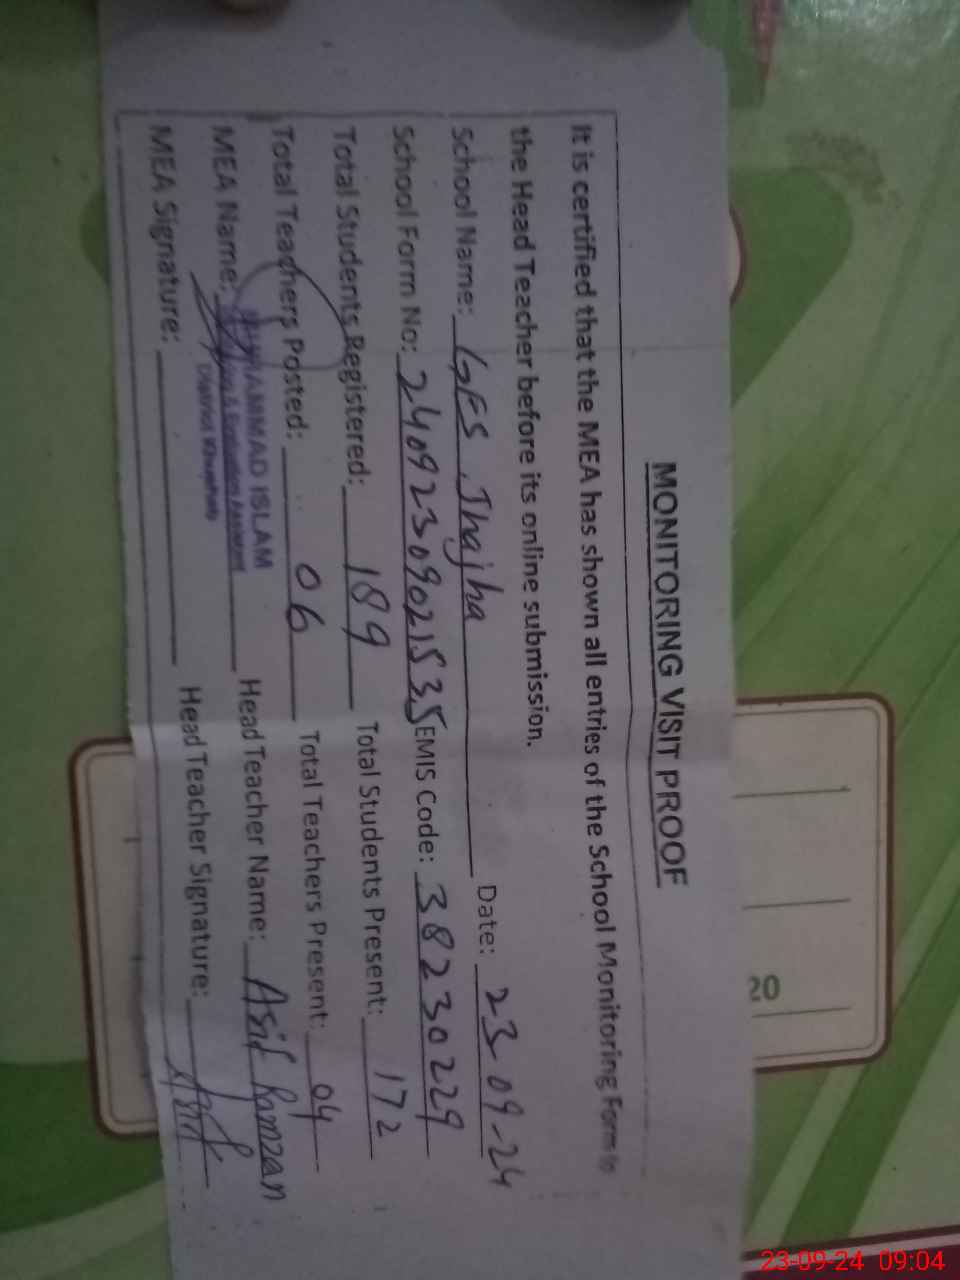 MONITORING VISIT PROOF
It is certified that the MEA has shown all entries of the School Monitoring Form to
the Head Teacher before its online submission.
School Name: GES Jhajha Date: 23-09-24
School Form No: 24092309021535 EMIS Code: 38230229
Total Students Registered: 189 Total Students Present: 172
Total Teachers Posted: 06 Total Teachers Present: 04
MEA Name: MUHAMMAD ISLAM Head Teacher Name: Asif Ramzan
& Evaluation Assistant
District Khushab
MEA Signature: Head Teacher Signature: Asif
20
23-09-24 09:04